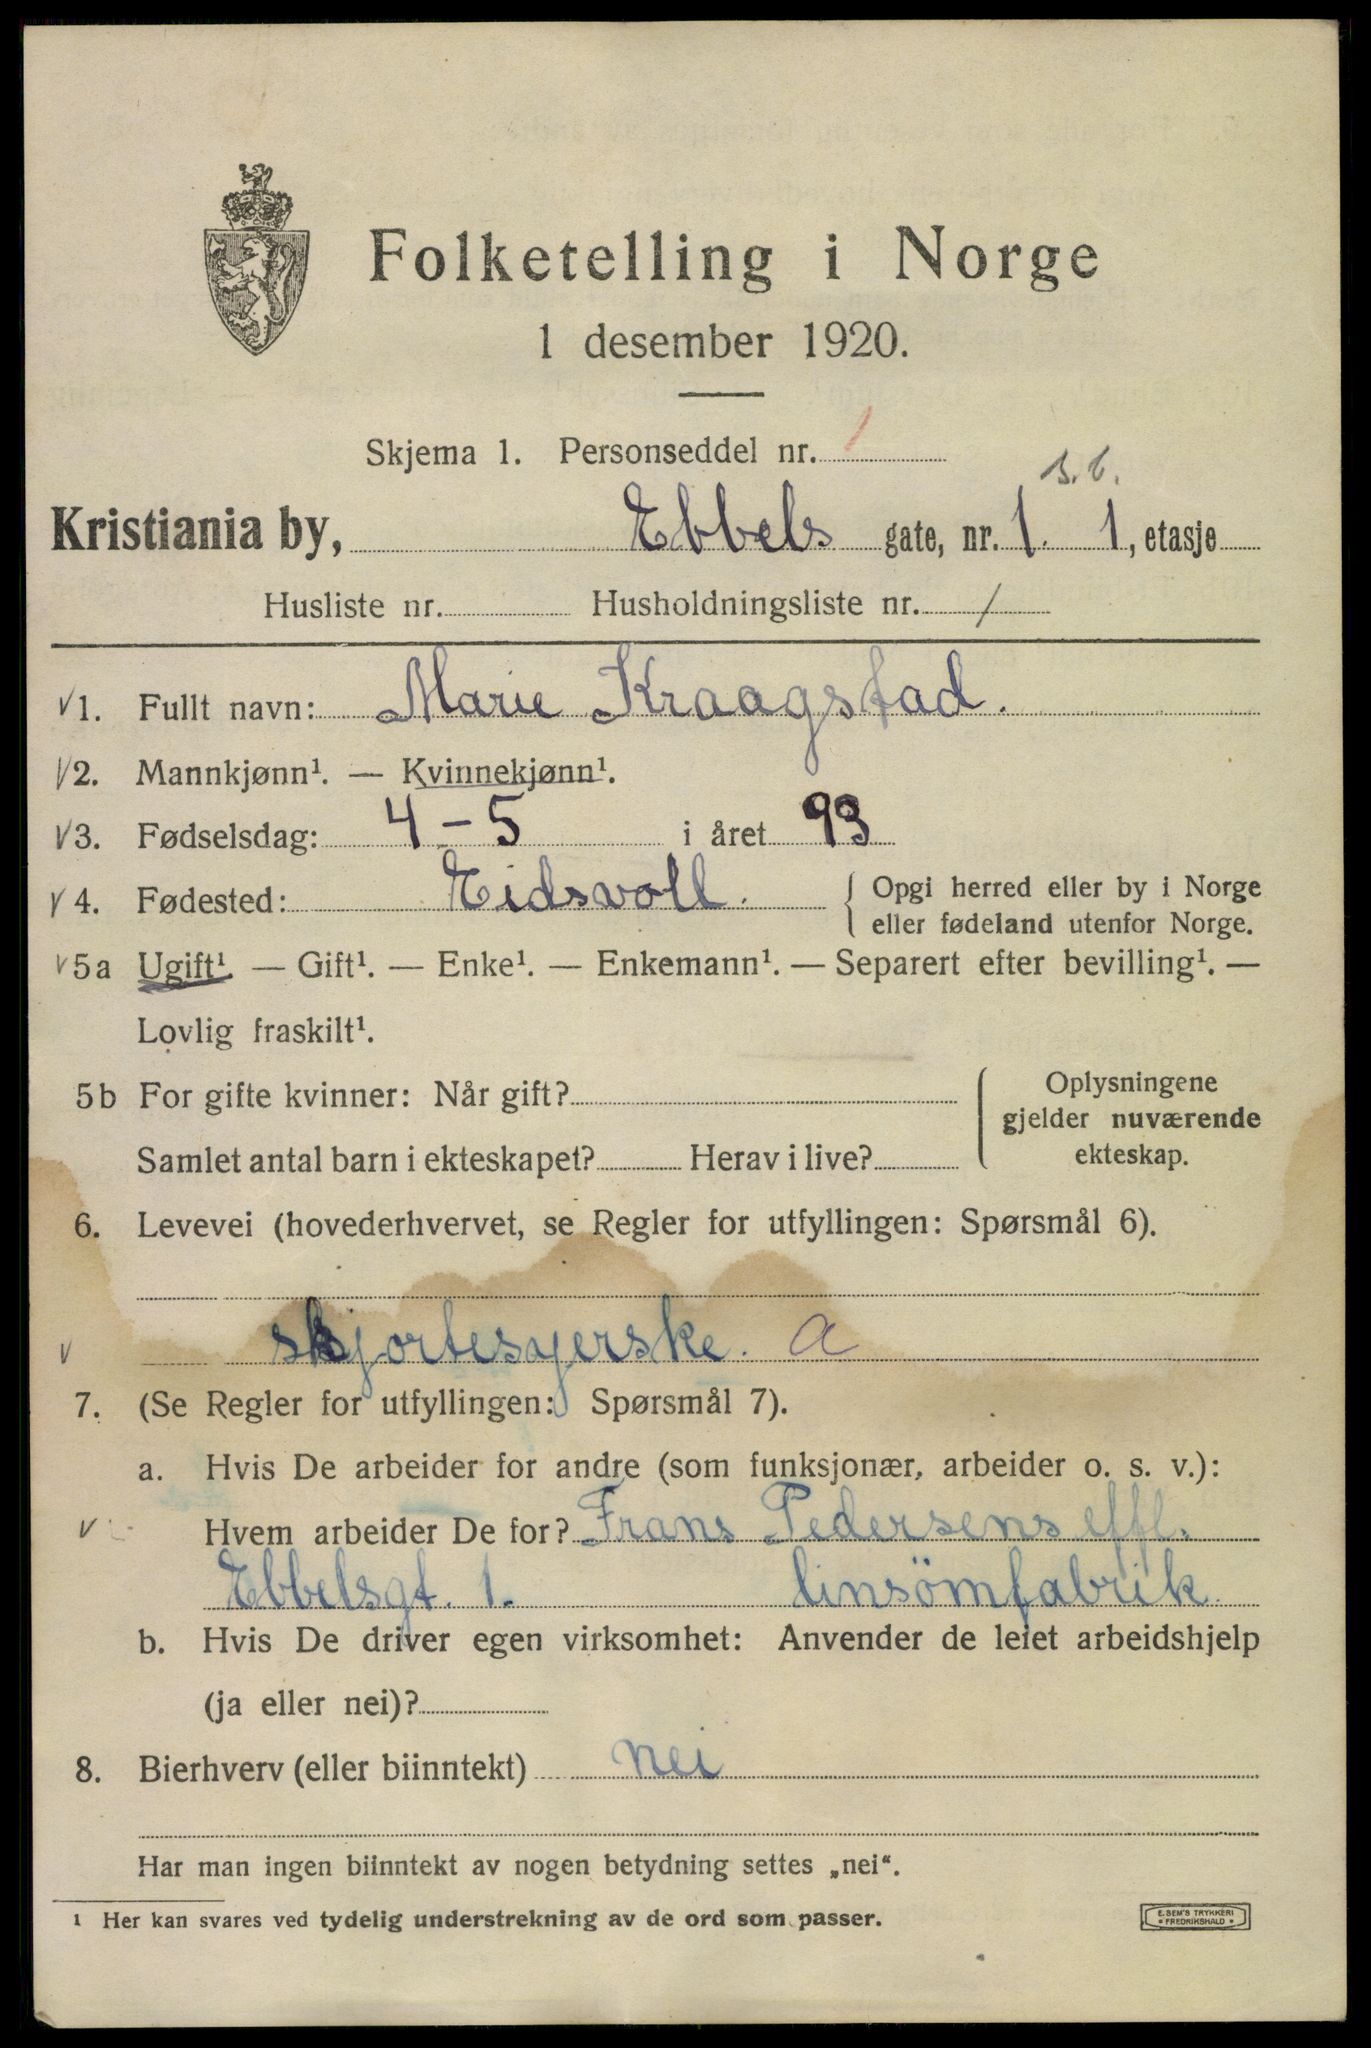 Folketelling i Norge
1 desember 1920.
Skjema 1. Personseddel nr. 1
Kristiania by, Ebbels gate, nr. 1. 1, etasje
Husliste nr. Husholdningsliste nr. 1
1. Fullt navn: Marie Kraagstad.
2. Mannkjønn¹. — Kvinnekjønn¹.
3. Fødselsdag: 4-5 i året 93
4. Fødested: Eidsvoll. { Opgi herred eller by i Norge
eller fødeland utenfor Norge.
5a Ugift¹ — Gift¹. — Enke¹. — Enkemann¹. — Separert efter bevilling¹. —
Lovlig fraskilt¹.
5b For gifte kvinner: Når gift? { Oplysningene
gjelder nuværende
ekteskap.
Samlet antal barn i ekteskapet? Herav i live?
6. Levevei (hovederhvervet, se Regler for utfyllingen: Spørsmål 6).
skjortesyerske. a
7. (Se Regler for utfyllingen: Spørsmål 7).
a. Hvis De arbeider for andre (som funksjonær, arbeider o. s. v.):
Hvem arbeider De for? Frans Pedersens effl.
Ebbelsgt. 1. linsömfabrik.
b. Hvis De driver egen virksomhet: Anvender de leiet arbeidshjelp
(ja eller nei)?
8. Bierhverv (eller biinntekt) nei
Har man ingen biinntekt av nogen betydning settes „nei“.
¹ Her kan svares ved tydelig understrekning av de ord som passer.
E. SEM'S TRYKKERI
• FREDRIKSHALD •